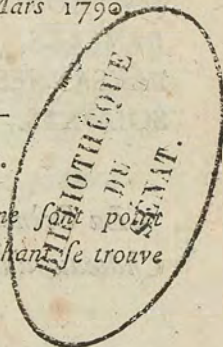 Mars 1790.
BIBLIOTHEQUE
DU
SÉNAT.
ne ſont point
ſe trouve